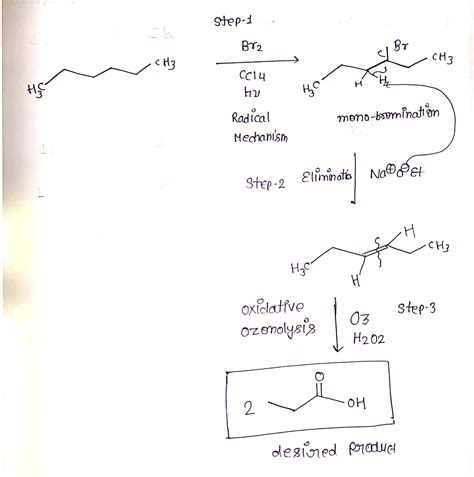 Step-1
Br2
CCl4
hν
Radical
Mechanism
H3C
CH3
Br
C
CH3
H3C
H
H
mono-bromination
Step-2
Eliminatio
Na⊕ ⊖OEt
H
C
CH3
H3C
H
oxidative
ozonolysis
O3
H2O2
Step-3
2
O
OH
desired product